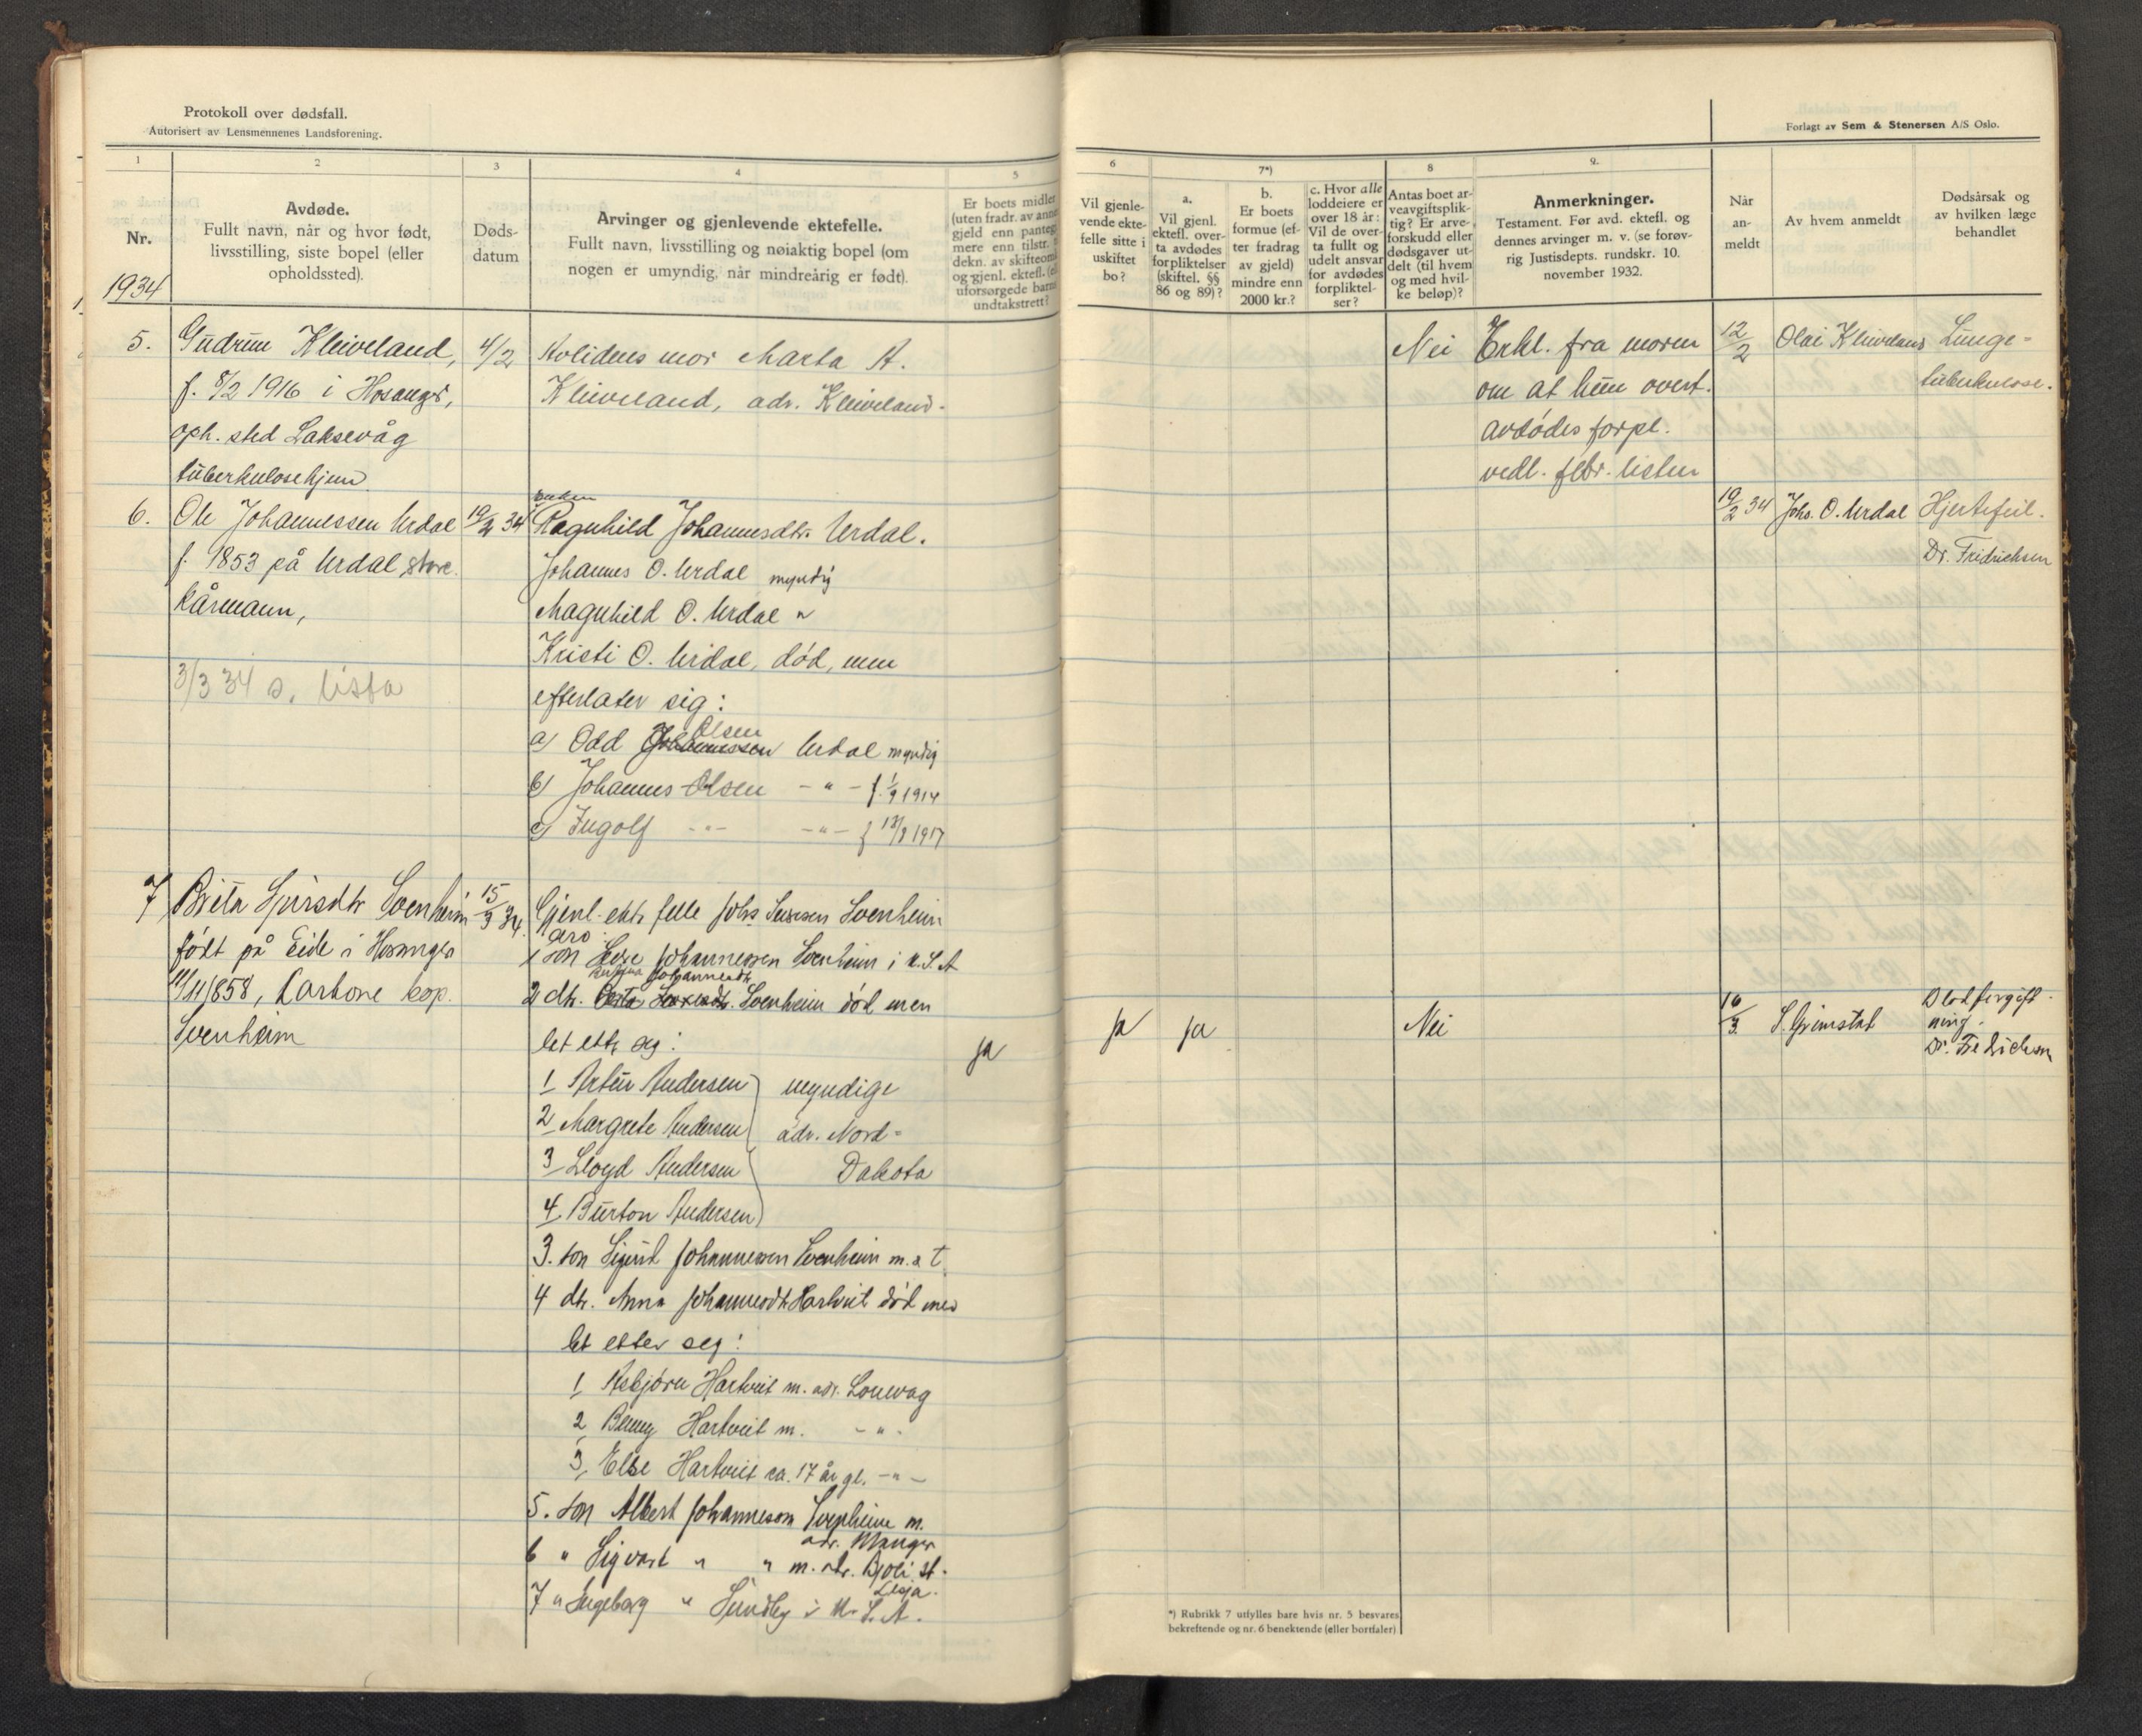 Protokoll over dødsfall.
Autorisert av Lensmennenes Landsforening.
1
2
3
4
5
Nr.
1934
Avdøde.
Fullt navn, når og hvor født,
livsstilling, siste bopel (eller
opholdssted).
Døds-
datum
Arvinger og gjenlevende ektefelle.
Fullt navn, livsstilling og nøiaktig bopel (om
nogen er umyndig, når mindreårig er født).
Er boets midler
(uten fradr. av
gjeld enn
mere enn tilstr.
dekn. av
og gjenl. ektef.
uforsørgede
undtakstrett?
5.
Gudrun Kleiveland,
f. 8/2 1916 i Hosanger,
oph. sted Laksevåg
tuberkulosehjem
4/2
Avlidens mor Marta A.
Kleiveland, adr. Kleiveland.
6.
Ole Johannessen Urdal
f. 1853 på Urdal store.
Kårmann,
3/3 34 s. lista
19/2 34
enken
Ragnhild Johannesdtr. Urdal.
Johannes O. Urdal myndig
Magnhild O. Urdal "
Kristi O. Urdal, død, men
efterlater sig:
Olsen
a) Odd Johannessen Urdal myndig
b) Johannes Olsen - " - f. 1/9 1914
c) Ingolf - " - - " - f 13/8 1917
7
Brita Sjursdtr Soenheim
født på Eide i Hosanger
11/11 1858, Karkone bop.
Soenheim
15/3 34.
Gjenl. ekte felle Johs Soenheim
arv:
1 søn Johannessen Soenheim i U.S.A
Johannesdtr
2 dtr. Soenheim død men
let ette seg:
ja
1 Artur Andersen
2 Margrete Andersen
3 Lloyd Andersen
4. Burton Andersen
myndige
adr. Nord-
Dakota
3. søn Sigurd Johannessen Soenheim m. s t.
4 dtr. Anna Johannesdtr Hartveit død men
let etter seg:
1 Asbjørn Hartveit m. adr. Lonevag
2 Benny Hartveit m. - " -
3, Else Hartveit ca. 17 år gl. - " -
5. søn Albert Johannesson Soenheim m.
adr. Manger
6 " Sigvart " " m. adr. Bjoli st.
Lesja.
7 " Ingeborg " Sundby i U. S. A.
Forlagt av Sem & Stenersen A/S Oslo.
6
7*)
8
9.
Vil gjenle-
vende ekte-
felle sitte i
uskiftet
bo?
a.
Vil gjenl.
ektefl. over-
ta avdødes
forpliktelser
(skiftel. §§
86 og 89)?
b.
Er boets
formue (ef-
ter fradrag
av gjeld)
mindre enn
2000 kr.?
c. Hvor alle
loddeiere er
over 18 år:
Vil de over-
ta fullt og
udelt ansvar
for avdødes
forpliktel-
ser?
Antas boet ar-
veavgiftsplik-
tig? Er arve-
forskudd eller
dødsgaver ut-
delt (til hvem
og med hvil-
ke beløp)?
Anmerkninger.
Testament. Før avd. ektefl. og
dennes arvinger m. v. (se forøv-
rig Justisdepts. rundskr. 10.
november 1932.
Når
an-
meldt
Av hvem anmeldt
Dødsårsak og
av hvilken læge
behandlet
Nei
Erkl. fra moren
om at hun overt.
avdødes forpl.
vedl. febr. listen
12/2
Olai Kleiveland
Lunge-
tuberkulose.
19/2 34
Johs. O. Urdal
Hjertefeil.
Dr. Fridrichsen
ja
ja
Nei
16/3.
S. Grimstad
Blodforgift-
ning.
Dr. Fredrichsen
*) Rubrikk 7 utfylles bare hvis nr. 5 besvares
bekreftende og nr. 6 benektende (eller bortfaler)